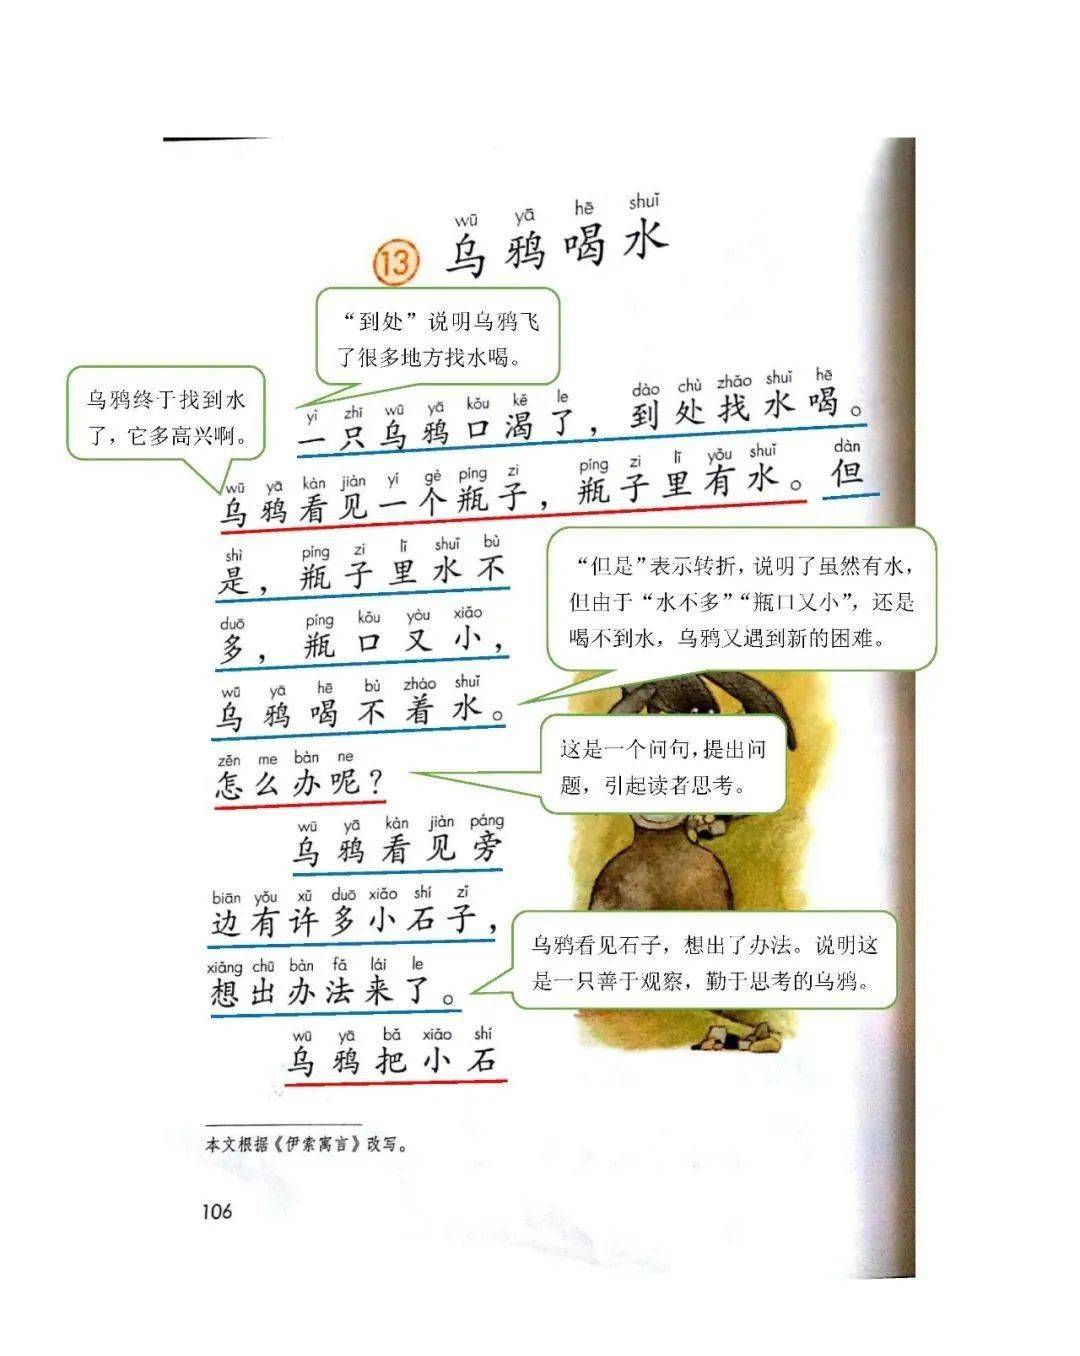 wū yā hē shuǐ
13 乌鸦喝水
“到处”说明乌鸦飞
了很多地方找水喝。
乌鸦终于找到水
了，它多高兴啊。
yì zhī wū yā kǒu kě le dào chù zhǎo shuǐ hē
一只乌鸦口渴了，到处找水喝。
wū yā kàn jiàn yí gè píng zi píng zi lǐ yǒu shuǐ dàn
乌鸦看见一个瓶子，瓶子里有水。但
shì píng zi lǐ shuǐ bù
是，瓶子里水不
“但是”表示转折，说明了虽然有水，
但由于“水不多”“瓶口又小”，还是
喝不到水，乌鸦又遇到新的困难。
duō píng kǒu yòu xiǎo
多，瓶口又小，
wū yā hē bù zháo shuǐ
乌鸦喝不着水。
zěn me bàn ne
怎么办呢？
这是一个问句，提出问
题，引起读者思考。
wū yā kàn jiàn páng
乌鸦看见旁
biān yǒu xǔ duō xiǎo shí zǐ
边有许多小石子，
xiǎng chū bàn fǎ lái le
想出办法来了。
乌鸦看见石子，想出了办法。说明这
是一只善于观察，勤于思考的乌鸦。
wū yā bǎ xiǎo shí
乌鸦把小石
本文根据《伊索寓言》改写。
106